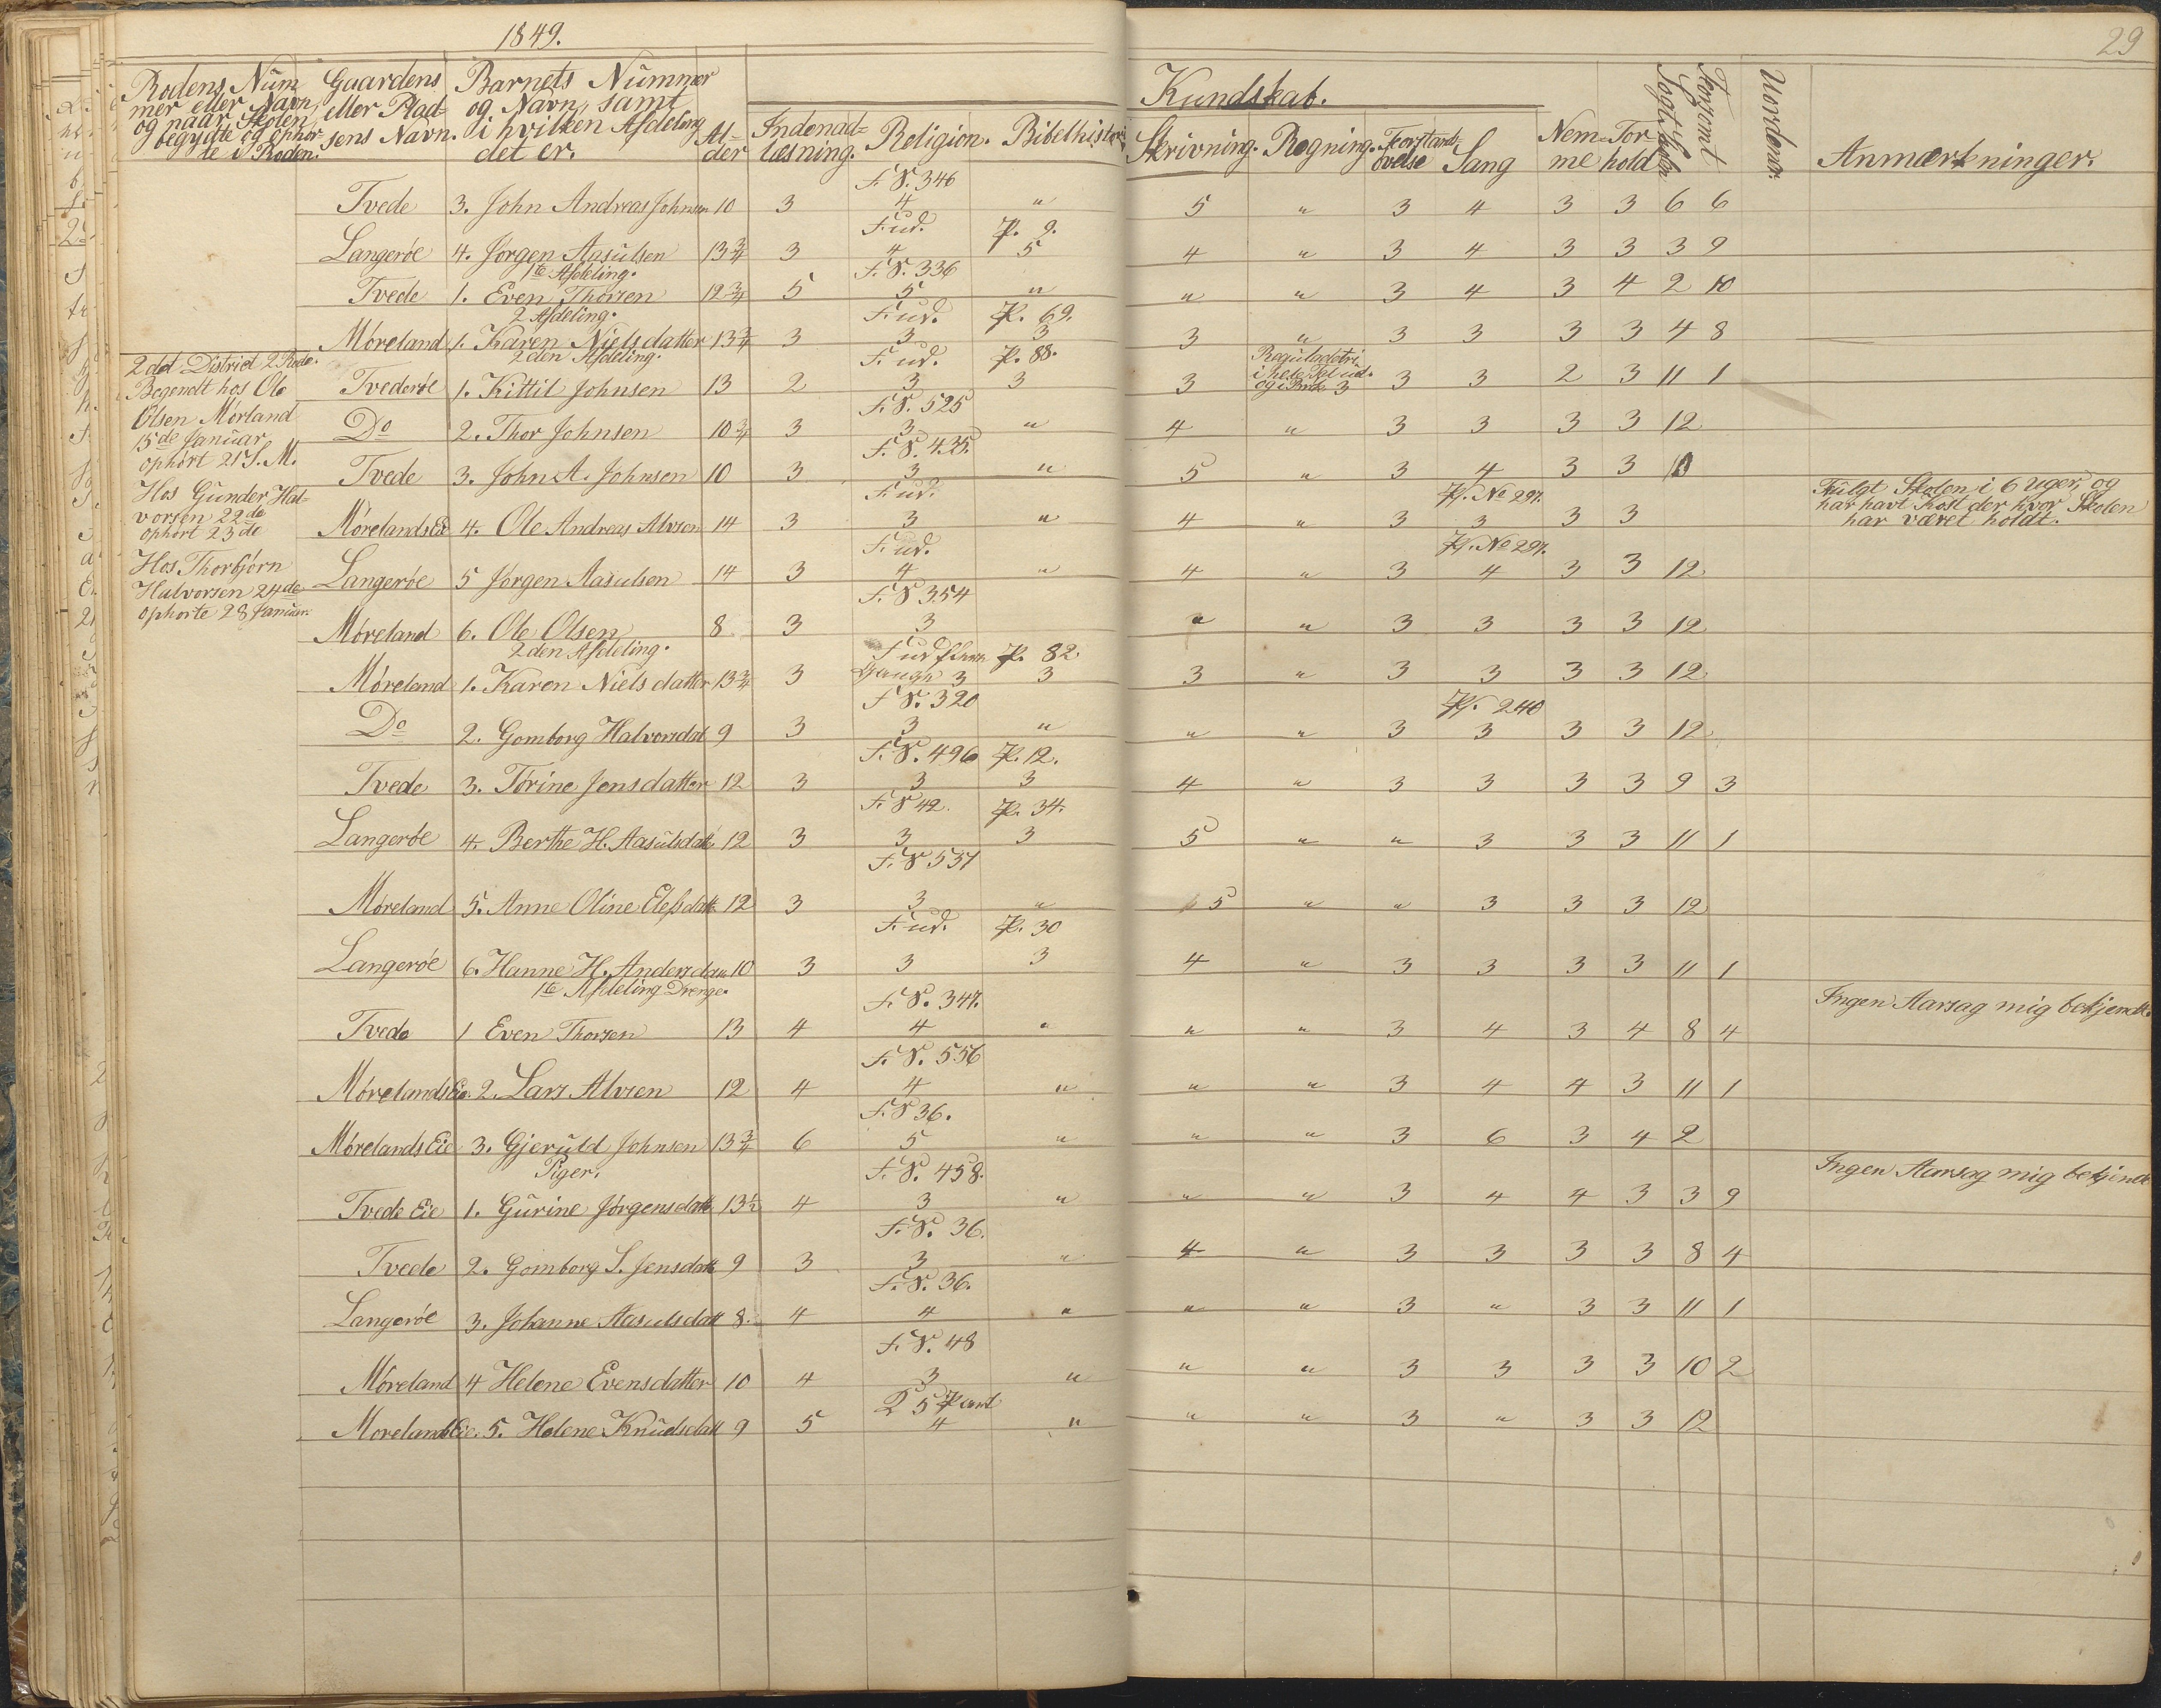 1849.
29
Rodens Num
mer eller Navn,
og naar Skolen
begyndte og ophør
te i Roden.
Gaardens
eller Plad-
sens Navn.
Barnets Nummer
og Navn, samt
i hvilken Afdeling
det er.
Al-
der
Indenad-
læsning.
Religion.
Bibelhistorie
Kundskab.
Skrivning.
Regning.
Forstands
øvelse
Sang
Nem-
me
For-
hold
Søgt Skolen
Forsømt
Uordener.
Anmærkninger.
F. S. 346
Tvede 3. John Andreas Johnsen 10 3 4 " 5 " 3 4 3 3 6 6
F. ud. P. 9.
Langerøe 4. Jørgen Aasulsen 13 3/4 3 4 5 4 " 3 4 3 3 3 9
1te Afdeling. F. S. 336
Tvede 1. Even Thorsen 12 3/4 5 5 " " " 3 4 3 4 2 10
2 Afdeling. F. ud. P. 69.
Møreland 1. Karen Nielsdatter 13 3/4 3 3 3 3 " 3 3 3 3 4 8
2det District 2 Rode.
Begyndt hos Ole
Olsen Mørland
15de Januar
ophørt 21 S. M.
Hos Gunder Hal-
vorsen 22de
ophørt 23de
Hos Thorbjørn
Halvorsen 24de
ophørte 28 Januar.
2den Afdeling. F. ud. P. 88. Reguladetri
i hele Tal ud.
og i Brøk 3
Tvederøe 1. Kittil Johnsen 13 2 3 3 3 3 3 2 3 11 1
F. S. 525
Do 2. Thor Johnsen 10 3/4 3 3 " 4 " 3 3 3 3 12
F. S. 435.
Tvede 3. John A. Johnsen 10 3 3 " 5 " 3 4 3 3 10
F. ud. Ps. No 297.
Mørelands Eie 4. Ole Andreas Alvsen 14 3 3 " 4 " 3 3 3 3
Fulgt Skolen i 6 Uger, og
har havt Kost der hvor Skolen
har været holdt.
F. ud. Ps. No 297.
Langerøe 5 Jørgen Aasulsen 14 3 4 " 4 " 3 4 3 3 12
F. S 354
Møreland 6. Ole Olsen 8 3 3 " " 3 3 3 3 12
2den Afdeling. F ud P. 82
Møreland 1. Karen Nielsdatter 13 3/4 3 3 3 3 " 3 3 3 3 12
F S. 320 Ps. 240
Do 2. Gomborg Halvorsdat 9 3 3 " " " 3 3 3 3 12
F. S. 496 P. 12.
Tvede 3. Torine Jensdatter 12 3 3 3 4 " 3 3 3 3 9 3
F. S 42. P. 34.
Langerøe 4. Berthe H. Aasulsdatt 12 3 3 3 5 " " 3 3 3 11 1
F. S 537
Møreland 5. Anne Oline Elefsdatt 12 3 3 " 5 " " 3 3 3 12
F. ud. P. 30
Langerøe 6. Hanne H. Andersdatt 10 3 3 3 4 " 3 3 3 3 11 1
1te Afdeling Drenge. F. S. 347.
Tvede 1 Even Thorsen 13 4 4 " " " 3 4 3 4 8 4 Ingen Aarsag mig bekjendt.
F. S. 556
Mørelands Eie. 2. Lars Alvsen 12 4 4 " " " 3 4 4 3 11 1
F. S 36.
Mørelands Eie 3. Gjeruld Johnsen 13 3/4 6 5 " " " 3 6 3 4 2
Piger. F. S. 458.
Tvede Eie 1. Gurine Jørgensdatt 13 1/2 4 3 " " " 3 4 4 3 3 9 Ingen Aarsag mig bekjendt
F. S. 36.
Tvede 2. Gomborg S. Jensdatt 9 3 3 " 4 " 3 3 3 3 8 4
F. S. 36.
Langerøe 3. Johanne Aasulsdatt 8. 4 4 " " " 3 " 3 3 11 1
F. S. 48
Møreland 4 Helene Evensdatter 10 4 3 " " " 3 3 3 3 10 2
2 5 Part
Morelands Eie. 5. Helene Knudsdatt 9 5 4 " " " 3 " 3 3 12